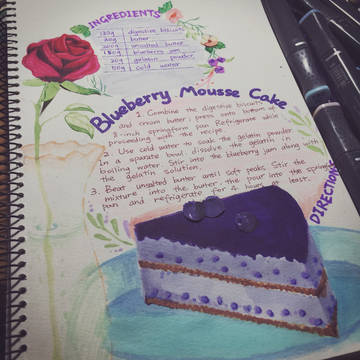 INGREDIENTS
digestive biscuits
butter
unsalted butter
blueberry jam
20g gelatin powder
50g cold water
Blueberry Mousse Cake
1. Combine the digestive biscuits
and cream butter; press onto bottom of
8-inch springform pan. Refrigerate while
proceeding with the recipe.
2. Use cold water to soak the gelatin powder.
In a separate bowl, dissolve the gelatin in
boiling water. Stir into the blueberry jam along with
the gelatin solution.
3. Beat unsalted butter until soft peaks. Stir the
mixture into the butter, the pour into the spring
pan and refrigerate for 4 hours at least.
DIRECTIONS